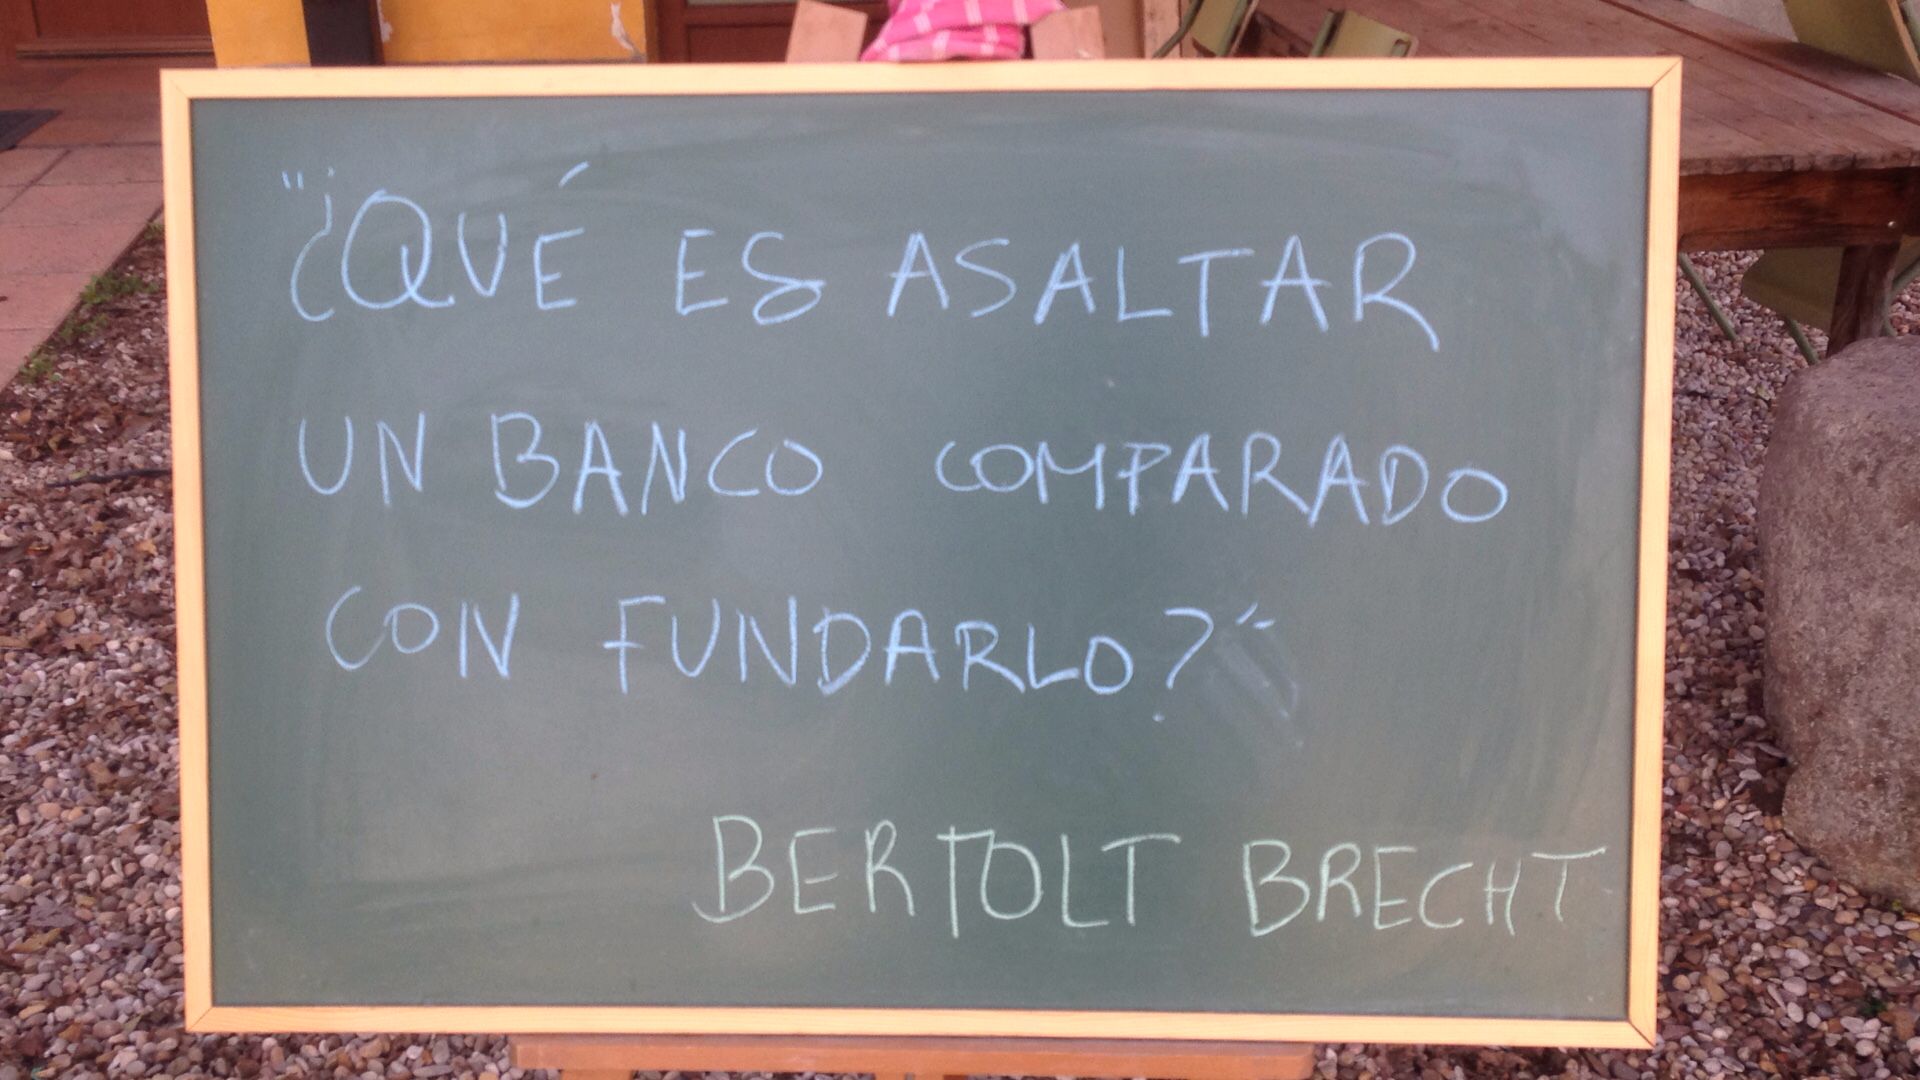 "¿QUÉ ES ASALTAR
UN BANCO COMPARADO
CON FUNDARLO?"
BERTOLT BRECHT